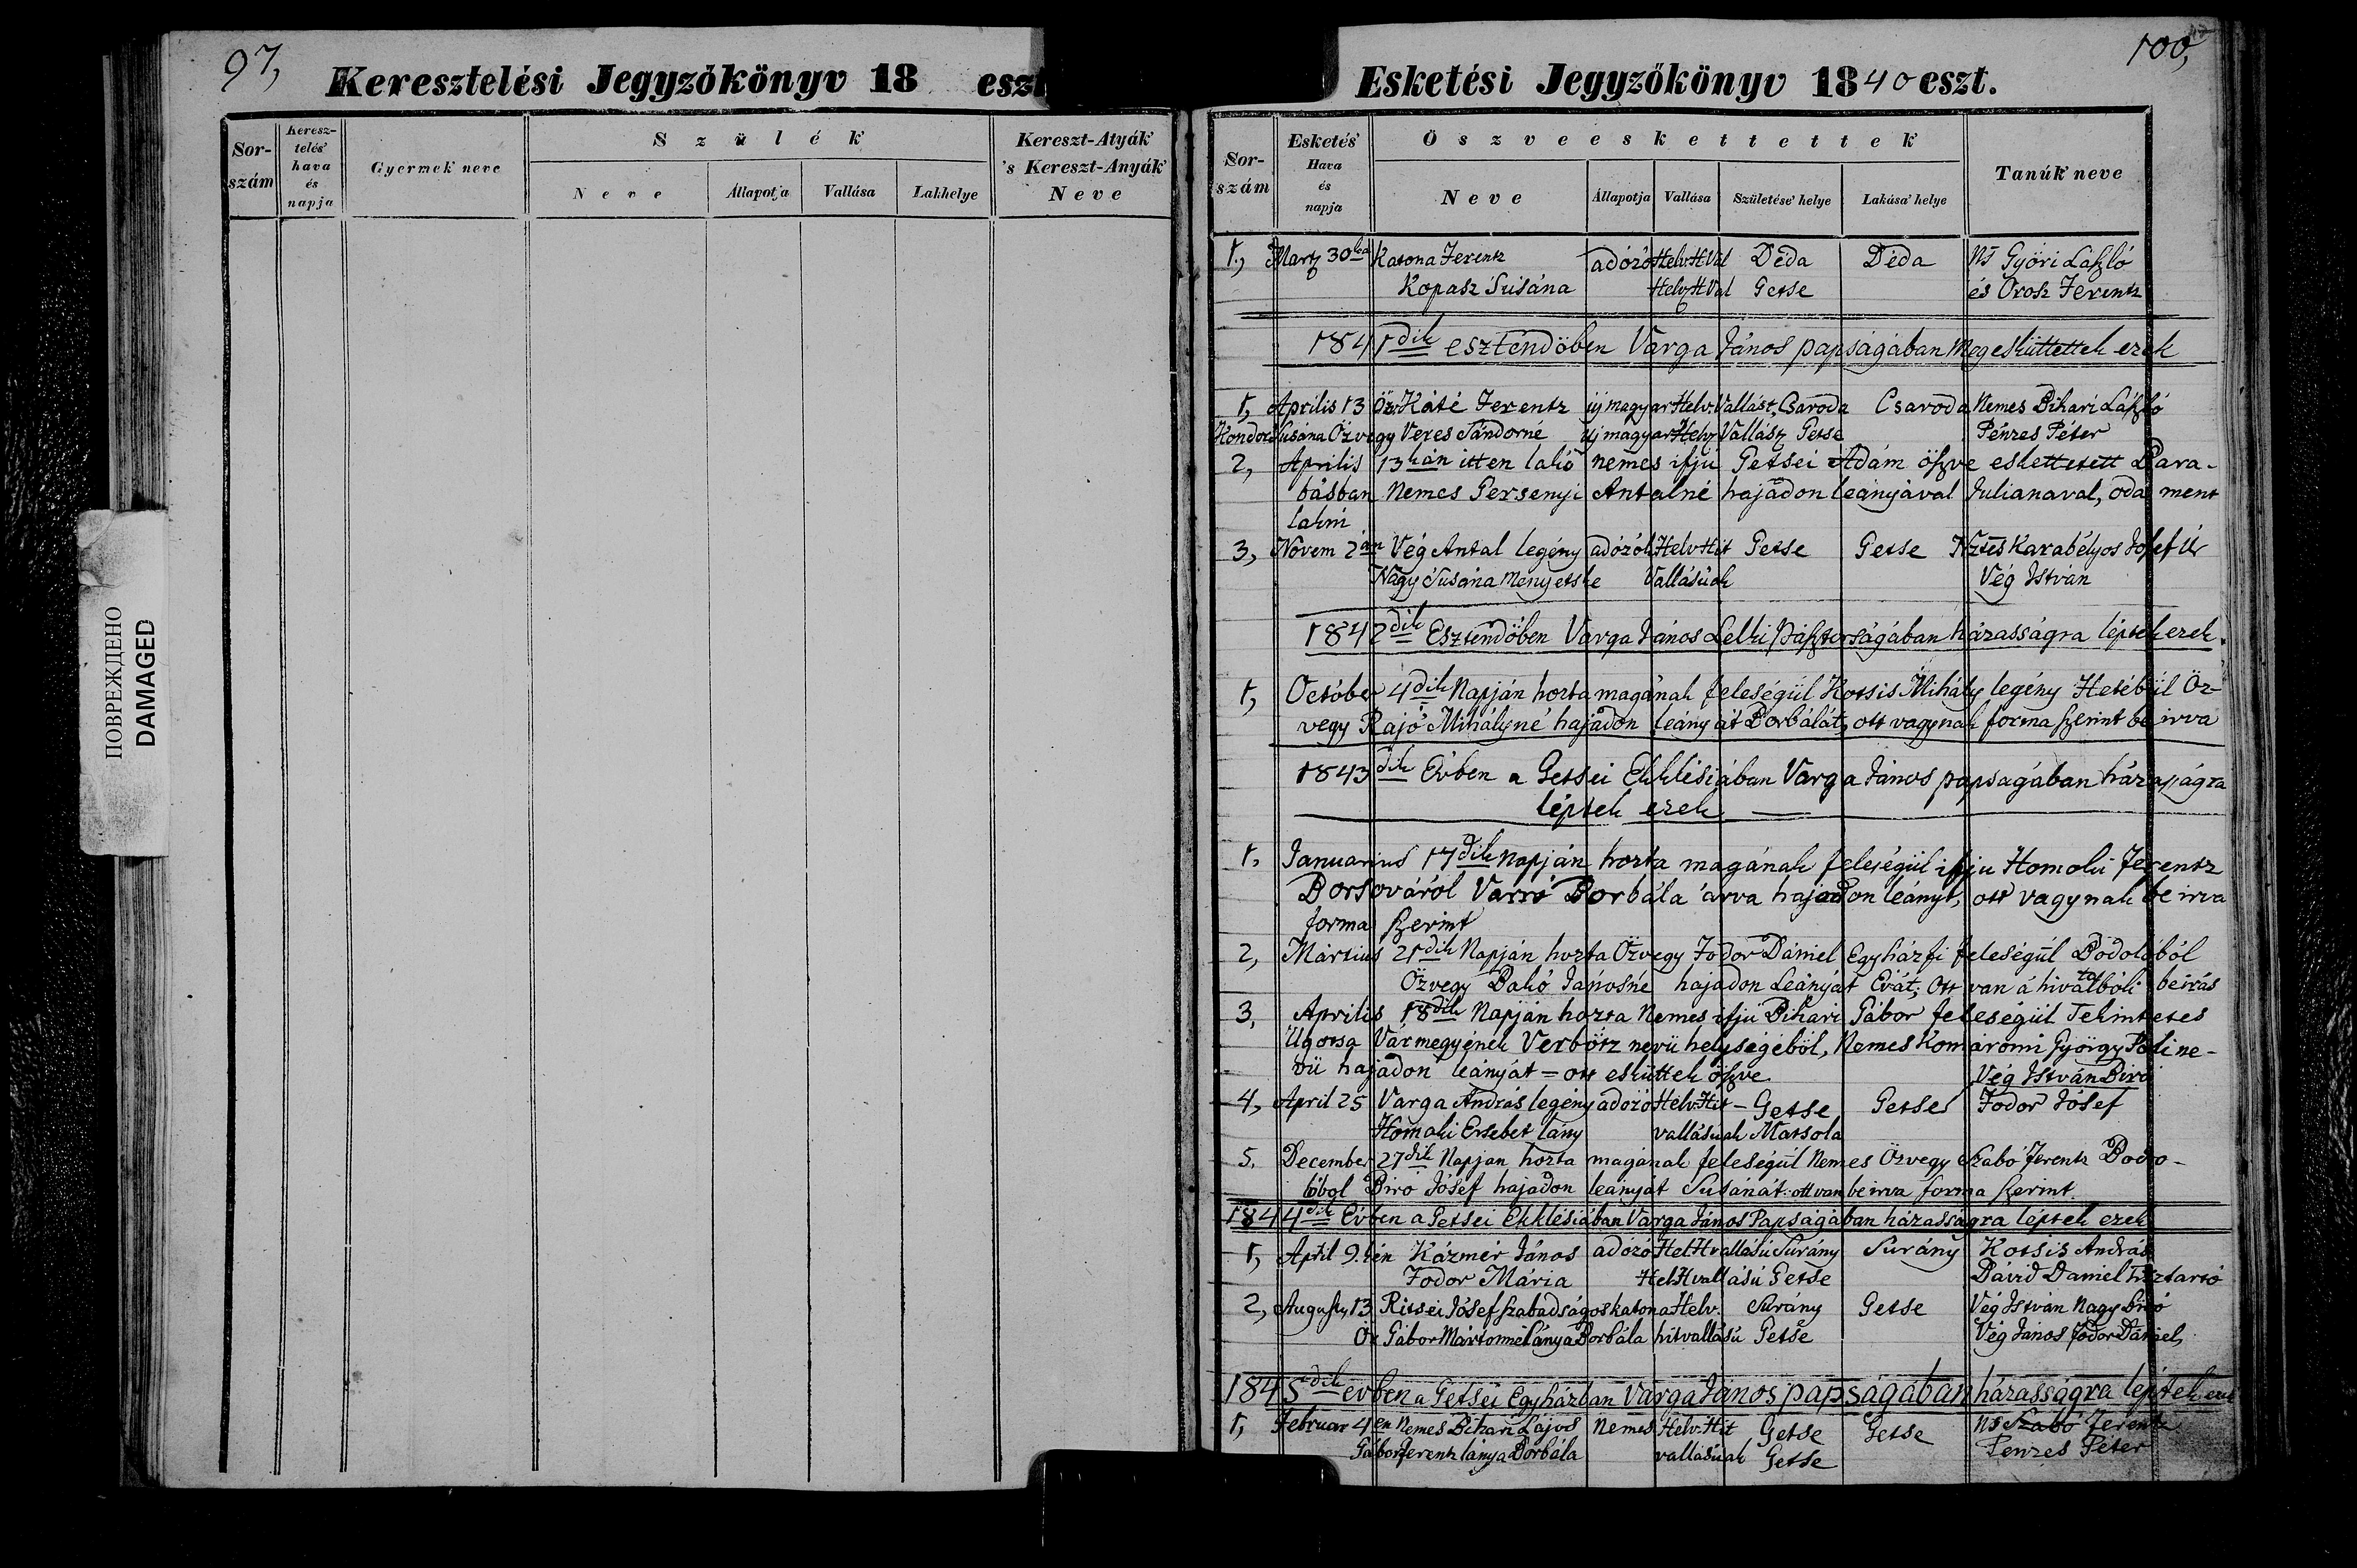 97,
Keresztelési Jegyzőkönyv 18 eszt
Sor-
szám
Keresz-
telés'
hava
és
napja
Gyermek' neve
Szülék'
Neve
Állapotja
Vallása
Lakhelye
Kereszt-Atyák'
's Kereszt-Anyák'
Neve
ПОВРЕЖДЕНО
DAMAGED
100,
Esketési Jegyzőkönyv 1840 eszt.
Sor-
szám
Esketés'
Hava
és
napja
Öszveeskettettek
Neve
Állapotja
Vallása
Születése' helye
Lakása' helye
Tanúk' neve
1., Martz 30kd Katona Ferentz adózó Helv H Val Déda Déda NS Györi László
Kopasz Susána Helv H Val Getse és Orosz Ferentz
1841dik esztendöben Varga János papságában megesküttettek ezek
1, Április 13 Özv Káté Ferentz új magyar Helv. Vallást, Csaroda Csaroda Nemes Bihari László
Hondor Susána Özvegy Veres Sándorné új magyar Helv Vallász Getse Pénzes Péter
2, Április 13kán itten lakó nemes ifjú Getsei Ádám öszve eskettetett Bara-
básban Nemes Gersenyi Antalné hajadon leányával Julianaval, oda ment
lakni
3, Novem 2án Vég Antal legény adózók Helv Hit Getse Getse Nztes Karabélyos Josef Ur
Nagy Susána menyetske Vallásúak Vég István
1842dik Esztendőben Varga János Lelki Pásztorságában házasságra léptek ezek.
1, Octóber 4dik Napján hozta magának feleségül Kotsis Mihály legény Hetéböl Öz-
vegy Rajó Mihályné hajadon leányát Borbálát, ott vagynak forma szerint be irva
1843dik Évben a Getsei Ekklésiában Varga János papságában házasságra
léptek ezek
1. Januarius 17dik napján hozta magának feleségül ifju Homoki Ferentz
Borsováról Varró Borbála árva hajadon leányt, ott vagynak be irva
forma szerint
2, Mártius 21dik Napján hozta Özvegy Fodor Dániel Egyházfi feleségül Dodolóból
Özvegy Bakó Jánosné hajadon Leányát Évát; Ott van a hivatalbóli beírás
3, Aprilis 18dik Napján hozta Nemes ifjú Bihari Gábor feleségül Tekintetes
Ugotsa Vármegyének Verbötz nevü helységéböl, Nemes Komáromi György Sófi ne-
vü hajadon leányát = ott esküttek öszve Vég István Biró
4, April 25 Varga András legény adózó Helv. Hit - Getse Getse Fodor Jósef
Homoki Ersebet lány vallásuak Matsola
5. December 27dik Napján hozta magának feleségül Nemes Özvegy Szabó Ferentz Dodo-
lóbol Biro Jósef hajadon leányát Susánát: ott van beirva forma szerint.
1844dik Évben a Getsei Ekklésiában Varga János Papságában házasságra léptek ezek
1, April 9.kén Kázmér János adózó Hel H vallású Surány Surány Kotsis András
Fodor Mária Hel H vallású Getse Dávid Daniel tisztartó
2, August, 13 Ritsei Jósef szabadságos katona Helv. Surány Getse Vég István Nagy Biró
Öz Gábor Mártonné lánya Borbála hitvallású Getse Vég János Fodor Dániel,
1845dik évben a Getsei Egyházban Varga János papságában házasságra léptek ezek
1, Februar 4én Nemes Bihari Lajos Nemes Helv. Hit Getse Getse NS Szabó Ferentz
Gábor Ferentz lánya Borbála vallásúak Getse Penzes Péter